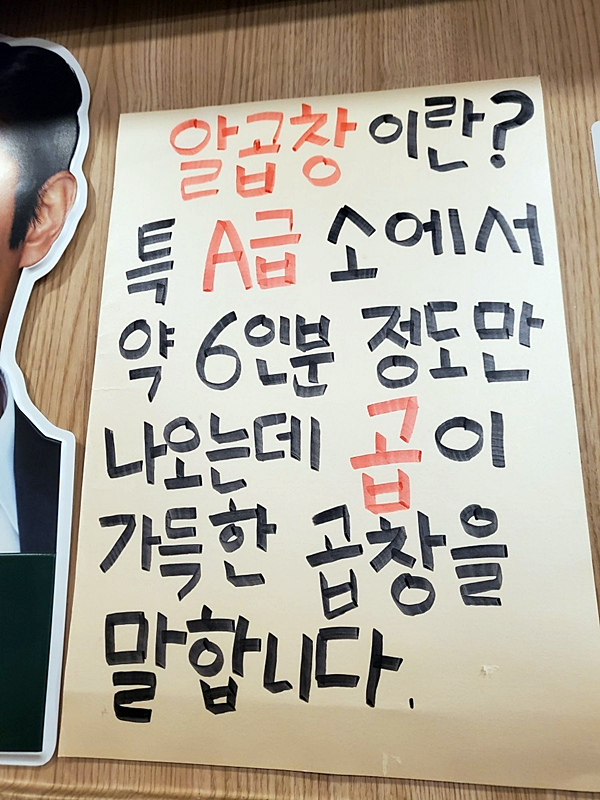 알곱창이란?
특 A급 소에서
약 6인분 정도만
나오는데 곱이
가득한 곱창을
말합니다.